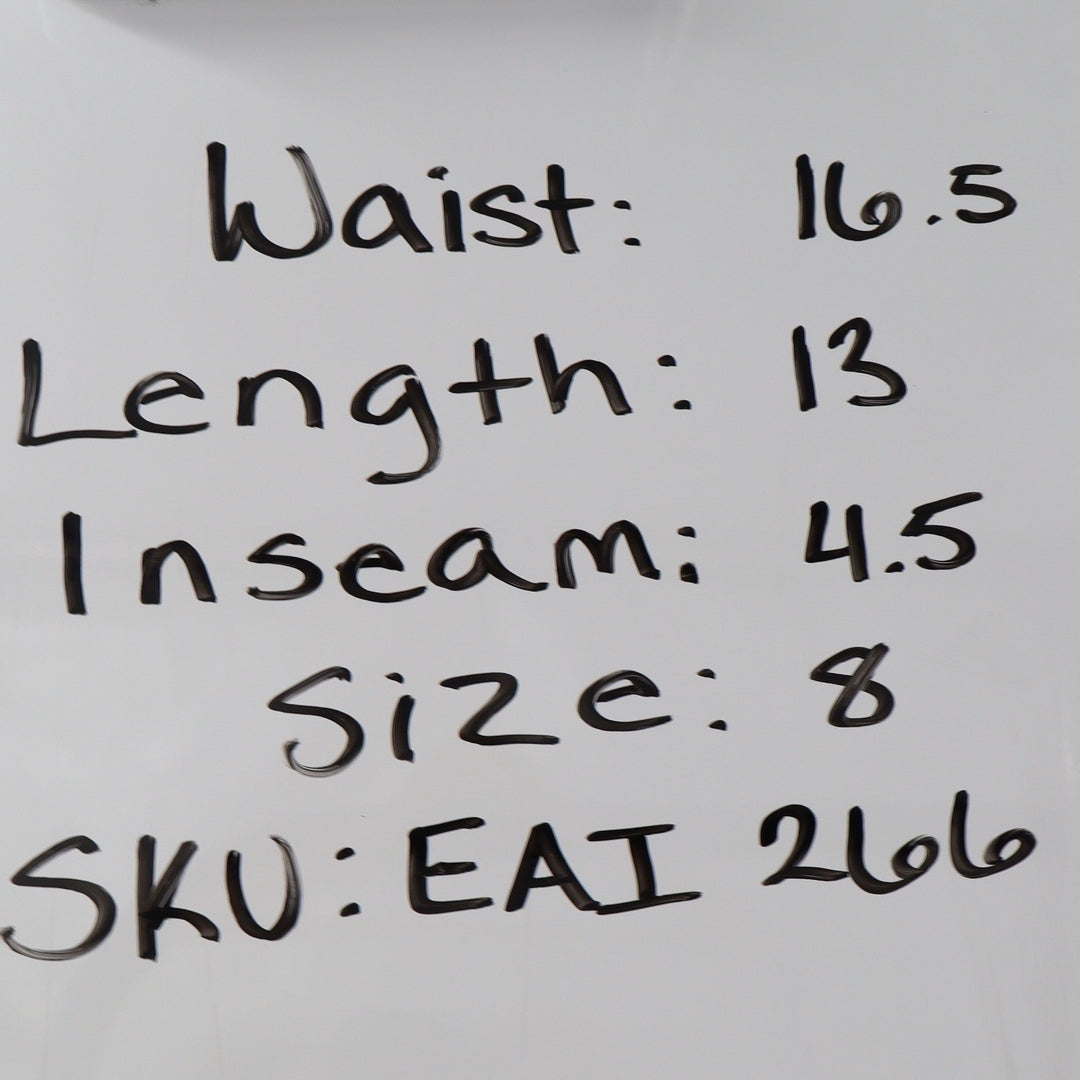 Waist: 16.5
Length: 13
Inseam: 4.5
Size: 8
SKU: EAI 266